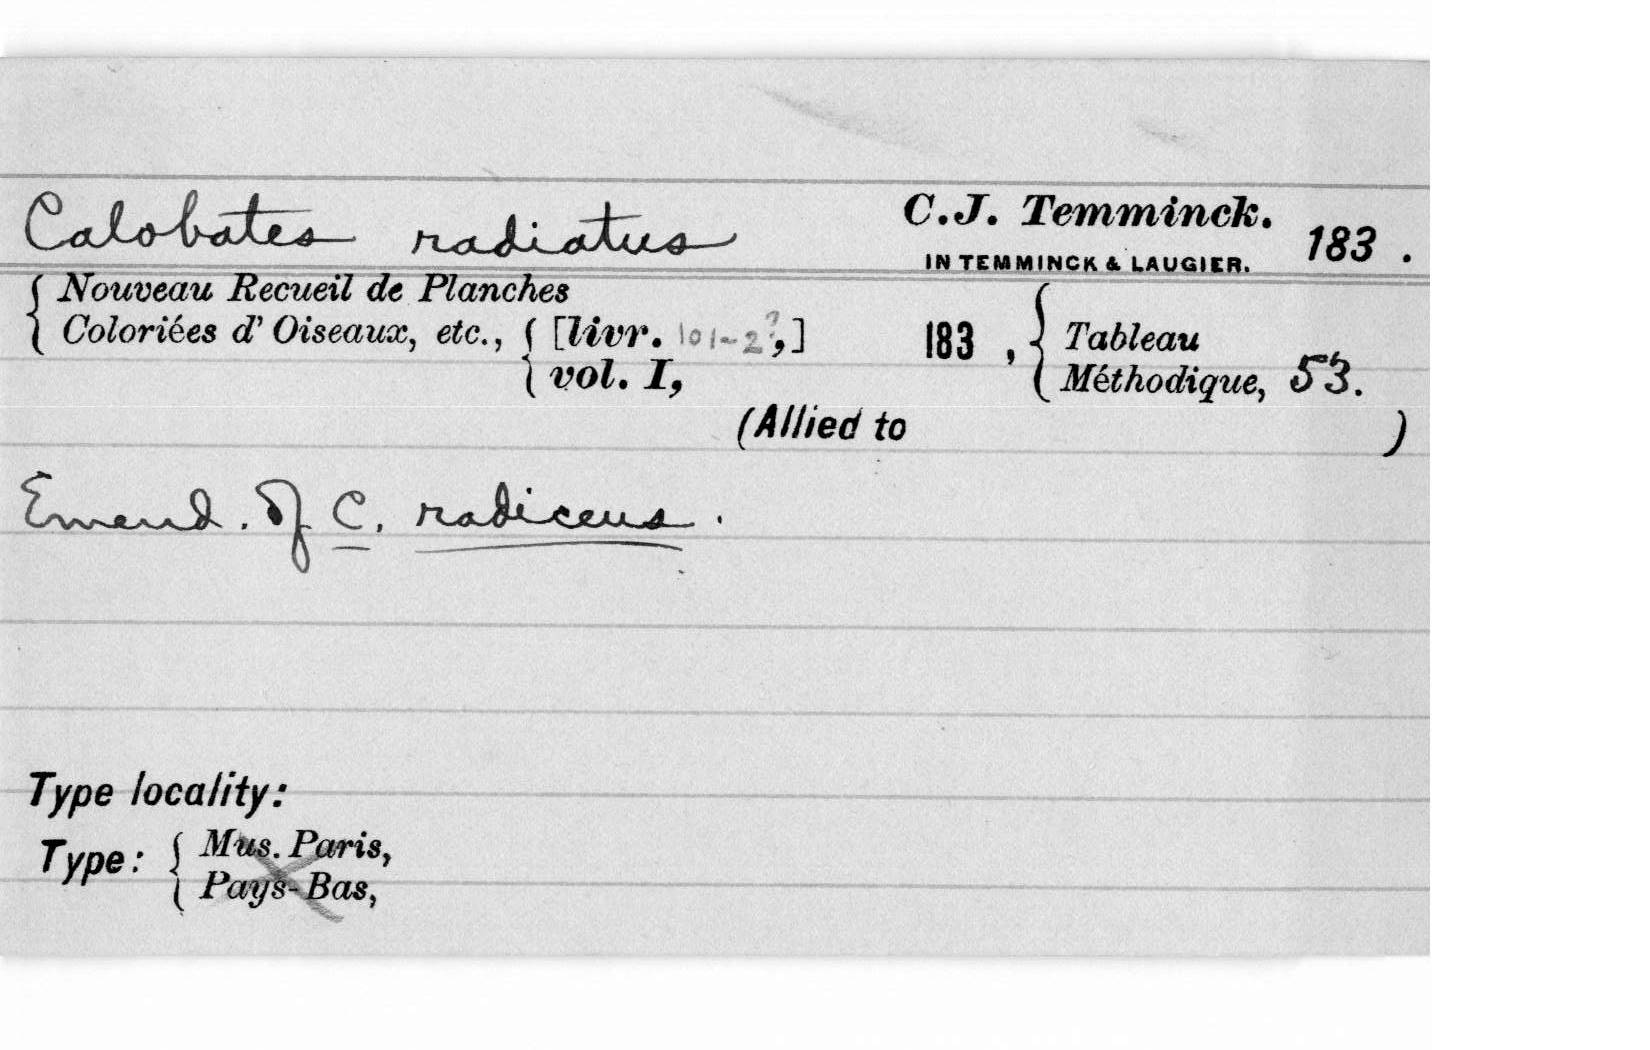 Calobates radiatus C.J. Temminck. 183.
IN TEMMINCK & LAUGIER.
Nouveau Recueil de Planches
Coloriées d' Oiseaux, etc., [livr. 101-2?,] 183 , Tableau
vol. I, Méthodique, 53.
(Allied to )
Emend. of C. radiceus.
Type locality:
Type: Mus. Paris,
Pays-Bas,